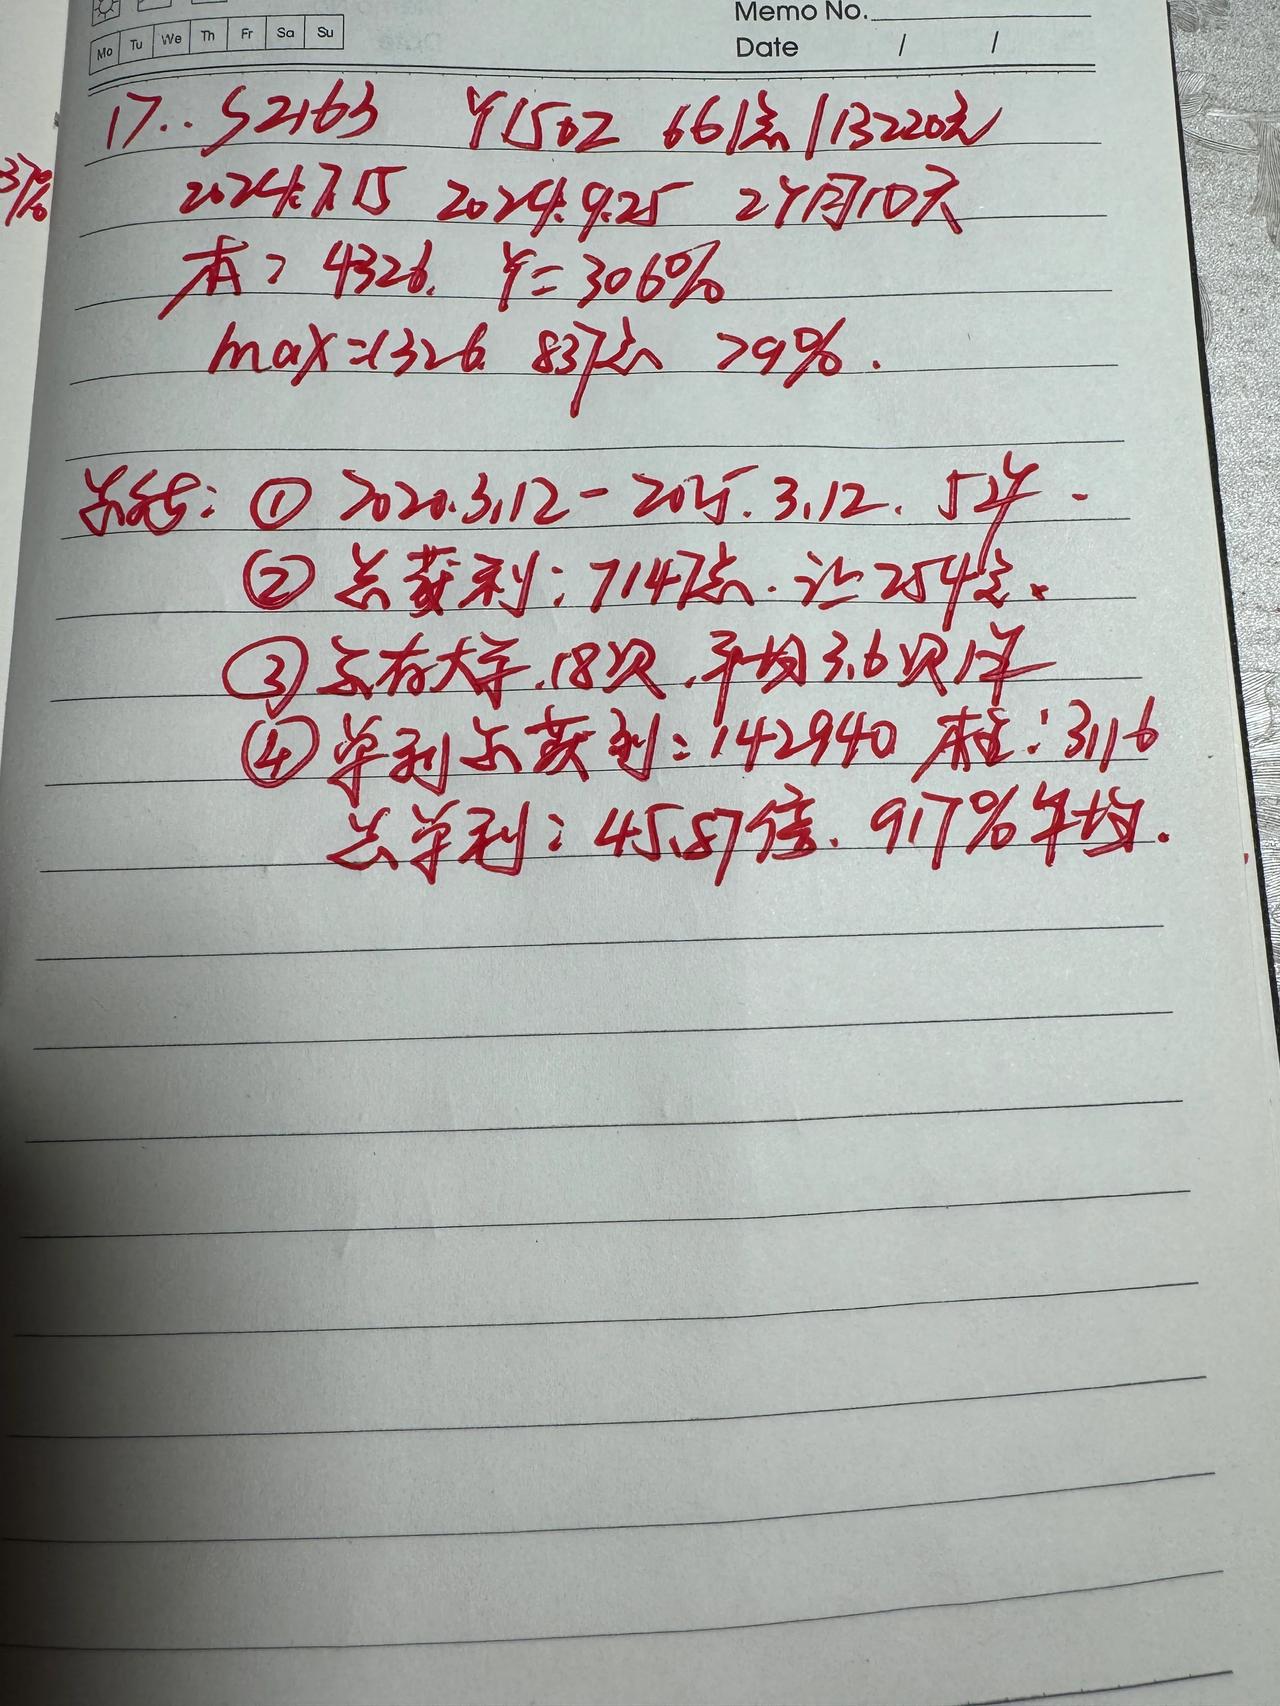 Memo No.
Mo Tu We Th Fr Sa Su
Date / /
17.. S2163 Y1502 661点/13220元
2024.7.15 2024.9.25 2个月10天
本= 4326. Y=306%
max=1326 837点 29%.
37%
总结: ① 2020.3.12-2025.3.12. 5年.
② 总获利: 7147点. 让254点.
③ 总存大于.18次.平均3.6次1年
④ 单利总获利: 142940 本: 3116
总单利: 45.87倍. 917%年均.